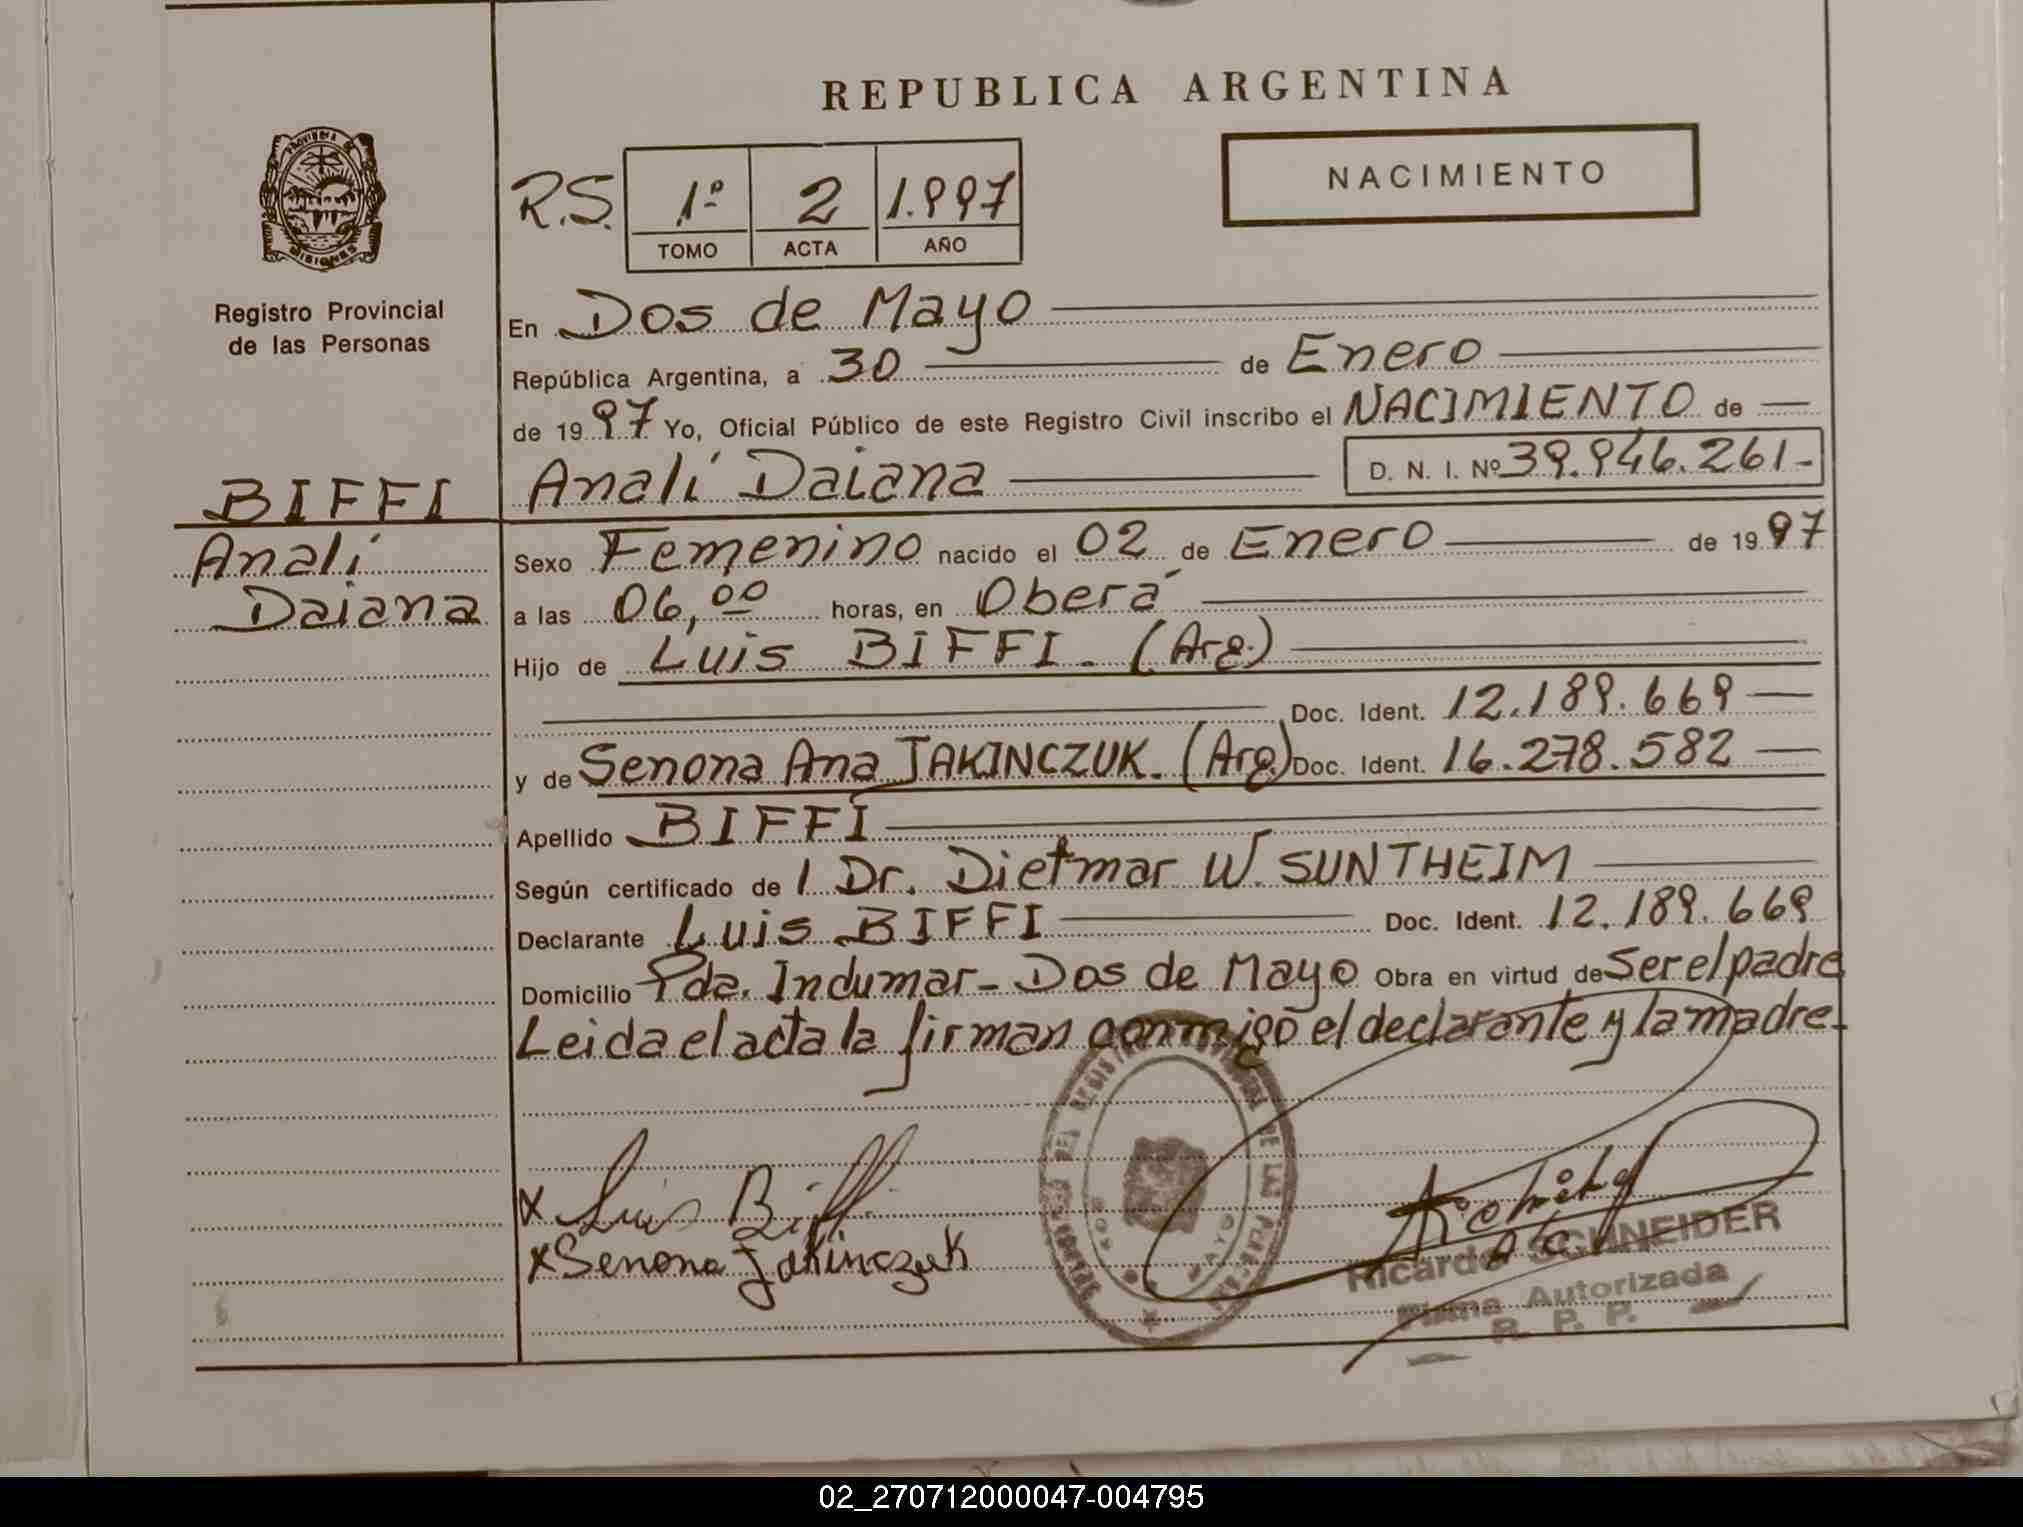 REPUBLICA ARGENTINA
PROVINCIA DE
MISIONES
Registro Provincial
de las Personas
R.S. 1º 2 1.997
TOMO ACTA AÑO
NACIMIENTO
En Dos de Mayo
República Argentina, a 30 de Enero
de 1997 Yo, Oficial Público de este Registro Civil inscribo el NACIMIENTO de
BIFFI
Analí
Daiana
Analí Daiana D. N. I. Nº 39.946.261-
Sexo Femenino nacido el 02 de Enero de 1997
a las 06,00 horas, en Oberá
Hijo de Luis BIFFI. (Arg.)
Doc. Ident. 12.189.669
y de Senona Ana JAKINCZUK. (Arg.) Doc. Ident. 16.278.582
Apellido BIFFI
Según certificado de l Dr. Dietmar W. SUNTHEIM
Declarante Luis BIFFI Doc. Ident. 12.189.669
Domicilio Pda. Indumar - Dos de Mayo Obra en virtud de Ser el padre
Leida el acta la firman conmigo el declarante y la madre.
x Luis Biffi
x Senona Jakinczuk
Ricardo SCHNEIDER
Firma Autorizada
R. P. P.
02_270712000047-004795